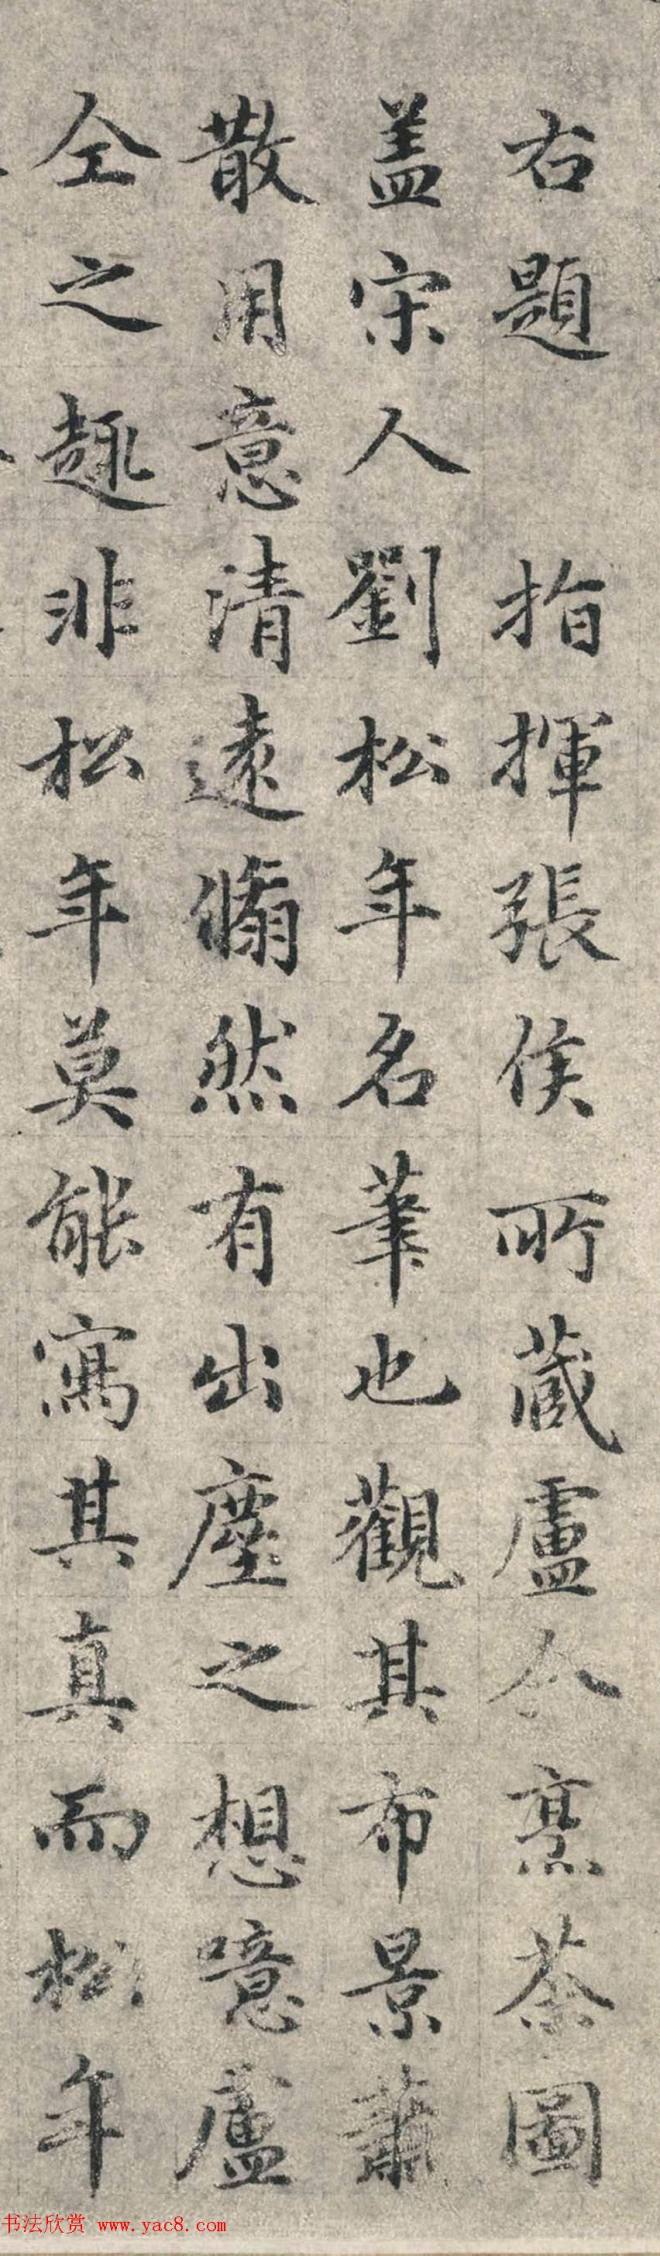 右題 指揮張侯所藏盧仝烹茶圖
盖宋人劉松年名筆也觀其布景蕭
散用意清遠翛然有出塵之想噫盧
仝之趣非松年莫能寫其真而松年
书法欣赏 www.yac8.com